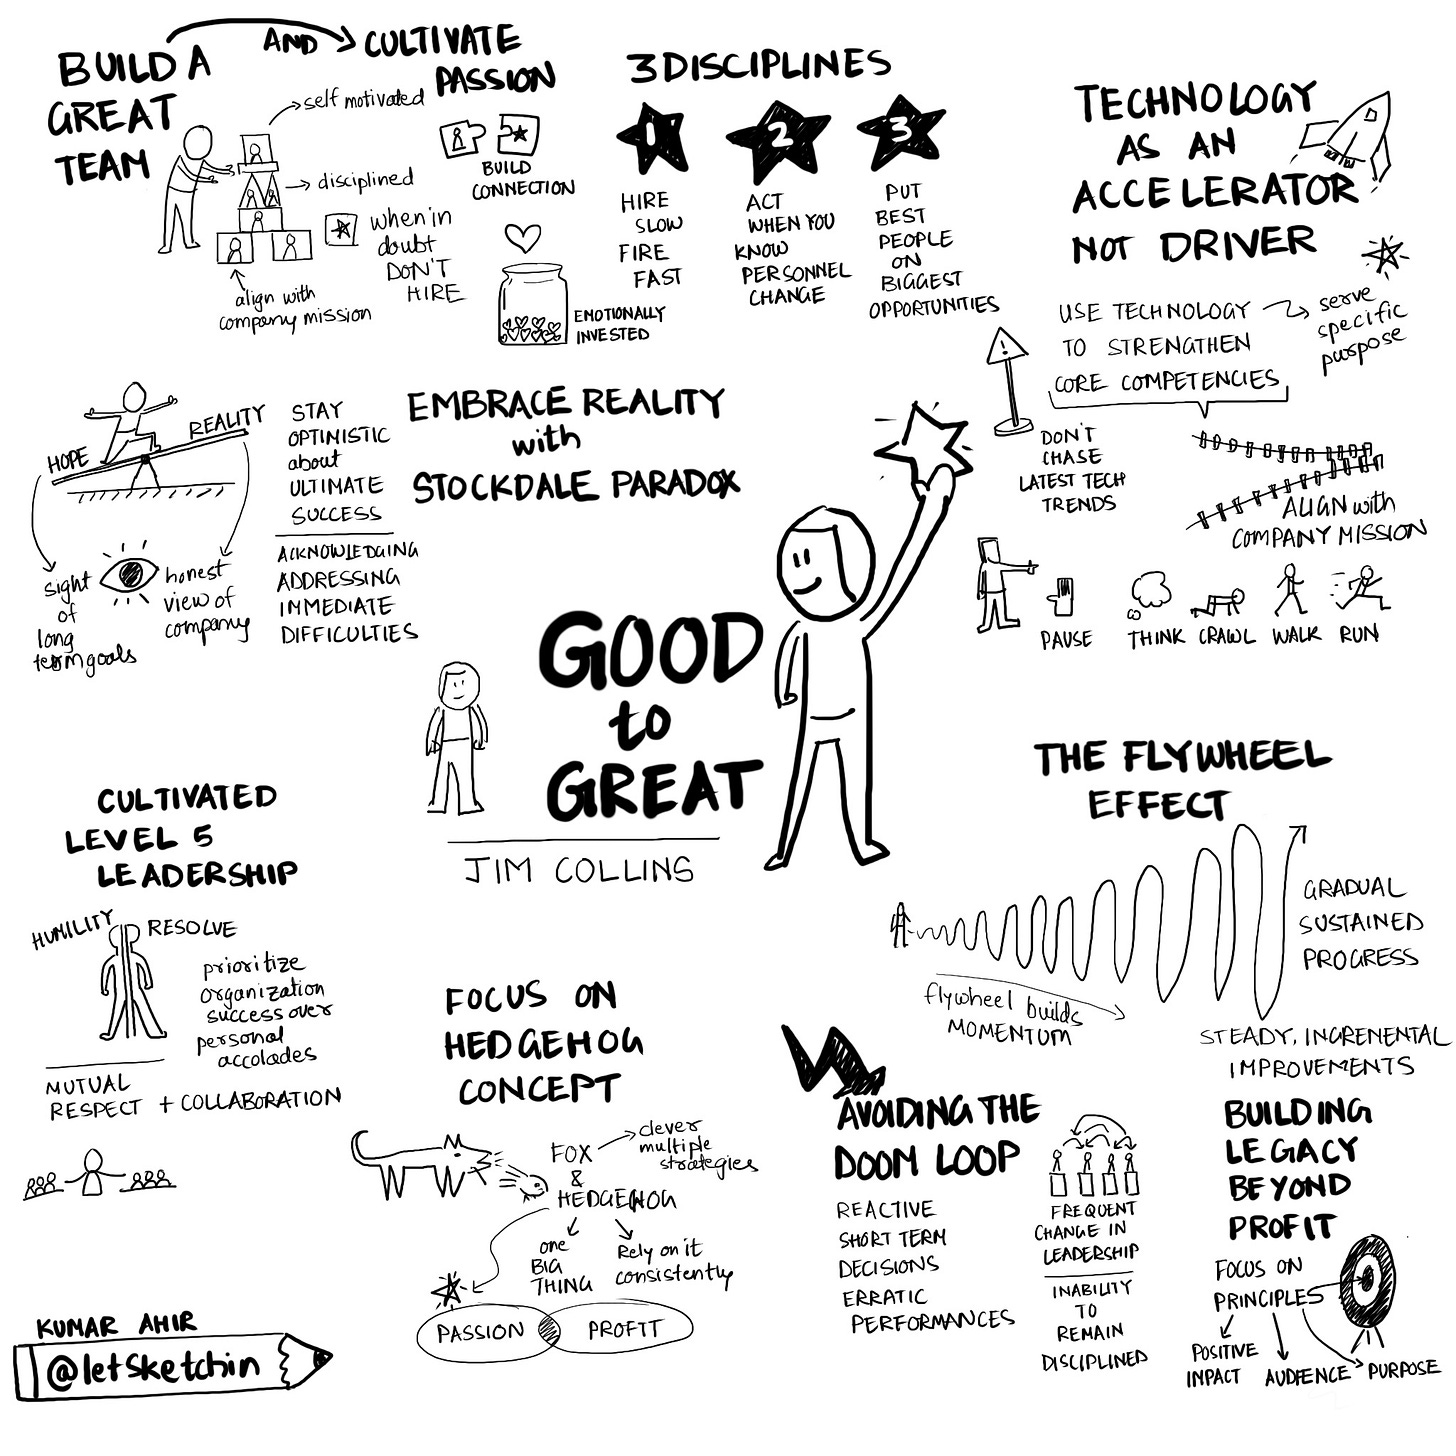 BUILD A
GREAT
TEAM
AND
CULTIVATE
PASSION
self motivated
disciplined
when in
doubt
DON'T
HIRE
align with
company mission
BUILD
CONNECTION
EMOTIONALLY
INVESTED
3 DISCIPLINES
1
HIRE
SLOW
FIRE
FAST
2
ACT
WHEN YOU
KNOW
PERSONNEL
CHANGE
3
PUT
BEST
PEOPLE
ON
BIGGEST
OPPORTUNITIES
TECHNOLOGY
AS AN
ACCELERATOR
NOT DRIVER
USE TECHNOLOGY
TO STRENGTHEN
CORE COMPETENCIES
serve
specific
purpose
!
DON'T
CHASE
LATEST TECH
TRENDS
ALIGN with
COMPANY MISSION
PAUSE
THINK CRAWL WALK RUN
HOPE
REALITY
sight
of
long
term goals
honest
view of
company
STAY
OPTIMISTIC
about
ULTIMATE
SUCCESS
ACKNOWLEDGING
ADDRESSING
IMMEDIATE
DIFFICULTIES
EMBRACE REALITY
with
STOCKDALE PARADOX
GOOD
to
GREAT
JIM COLLINS
CULTIVATED
LEVEL 5
LEADERSHIP
HUMILITY
RESOLVE
prioritize
organization
success over
personal
accolades
MUTUAL
RESPECT + COLLABORATION
FOCUS ON
HEDGEHOG
CONCEPT
FOX
&
HEDGEHOG
clever
multiple
strategies
one
BIG
THING
Rely on it
consistently
PASSION
PROFIT
THE FLYWHEEL
EFFECT
flywheel builds
MOMENTUM
GRADUAL
SUSTAINED
PROGRESS
STEADY, INCREMENTAL
IMPROVEMENTS
AVOIDING THE
DOOM LOOP
REACTIVE
SHORT TERM
DECISIONS
ERRATIC
PERFORMANCES
FREQUENT
CHANGE IN
LEADERSHIP
INABILITY
TO
REMAIN
DISCIPLINED
BUILDING
LEGACY
BEYOND
PROFIT
FOCUS ON
PRINCIPLES
POSITIVE
IMPACT
AUDIENCE
PURPOSE
KUMAR AHIR
@letsketchin